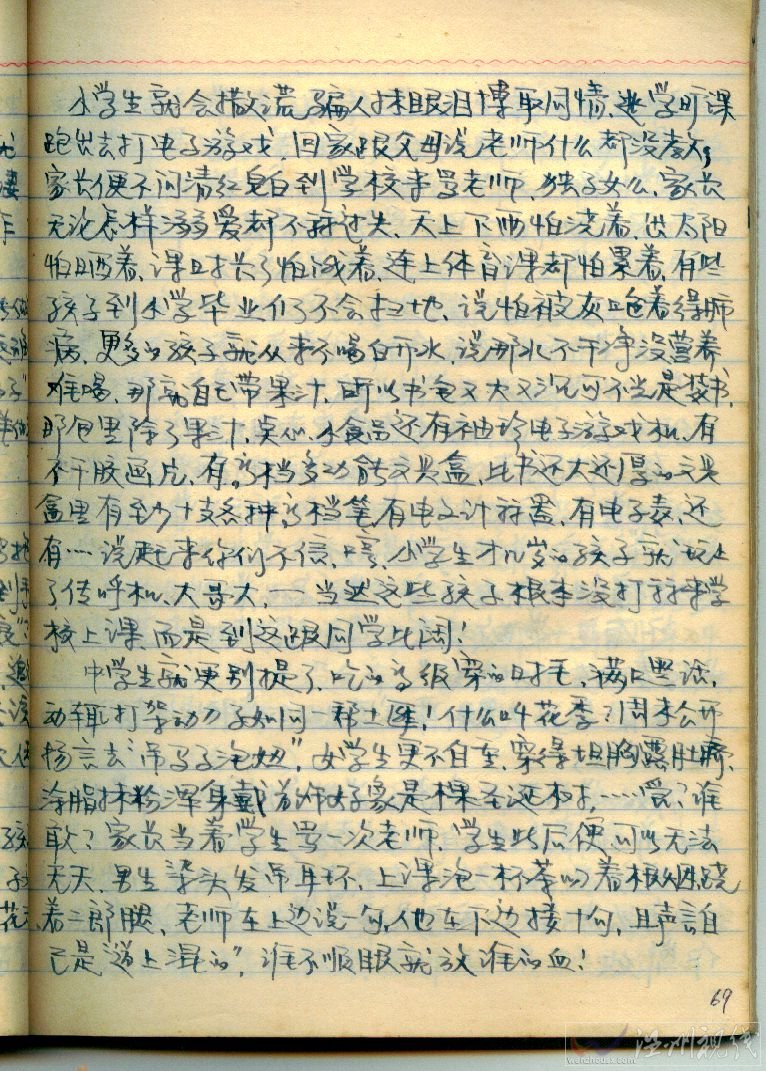 小学生就会撒谎骗人抹眼泪博取同情、逃学旷课
跑出去打电子游戏,回家跟父母说老师什么都没教,
家长便不问清红皂白到学校来骂老师。独子女么,家长
无论怎样溺爱都不算过失、天上下雨怕浇着、出太阳
怕晒着、课时长了怕饿着、连上体育课都怕累着、有些
孩子到小学毕业们了不会扫地、说怕被灰呛着得肺
病、更多的孩子就从来不喝白开水,说那水不干净没营养
难喝、那就自己带果汁,所以书包又大又沉可不光是装书,
那包里除了果汁、点心、小食品还有袖珍电子游戏机、有
不干胶画片,有高档多功能文具盒,比书还大还厚的文具
盒里有至少十支各种高档笔,有电子计算器、有电子表、还
有…说起来你们不信、嘿、小学生才几岁的孩子就玩上
了传呼机、大哥大,—当然这些孩子根本没打算来学
校上课,而是到这跟同学比阔!
中学生就更别提了、吃的高级穿的时毛,满口黑话,
动辄打架动刀子如同一帮土匪!什么叫花季?周末公开
扬言去“吊马子泡妞”,女学生更不自重、穿得坦胸露肚脐、
涂脂抹粉浑身戴首饰好象是棵圣诞树,……管?谁
敢?家长当着学生骂一次老师,学生此后便可以无法
无天,男生染头发吊耳环,上课泡一杯茶叼着根烟跷
着二郎腿,老师在上边说一句,他在下边接十句,且声言自
己是“道上混的”,谁不顺眼就放谁的血!
69
温州视线
wenzhousx.com